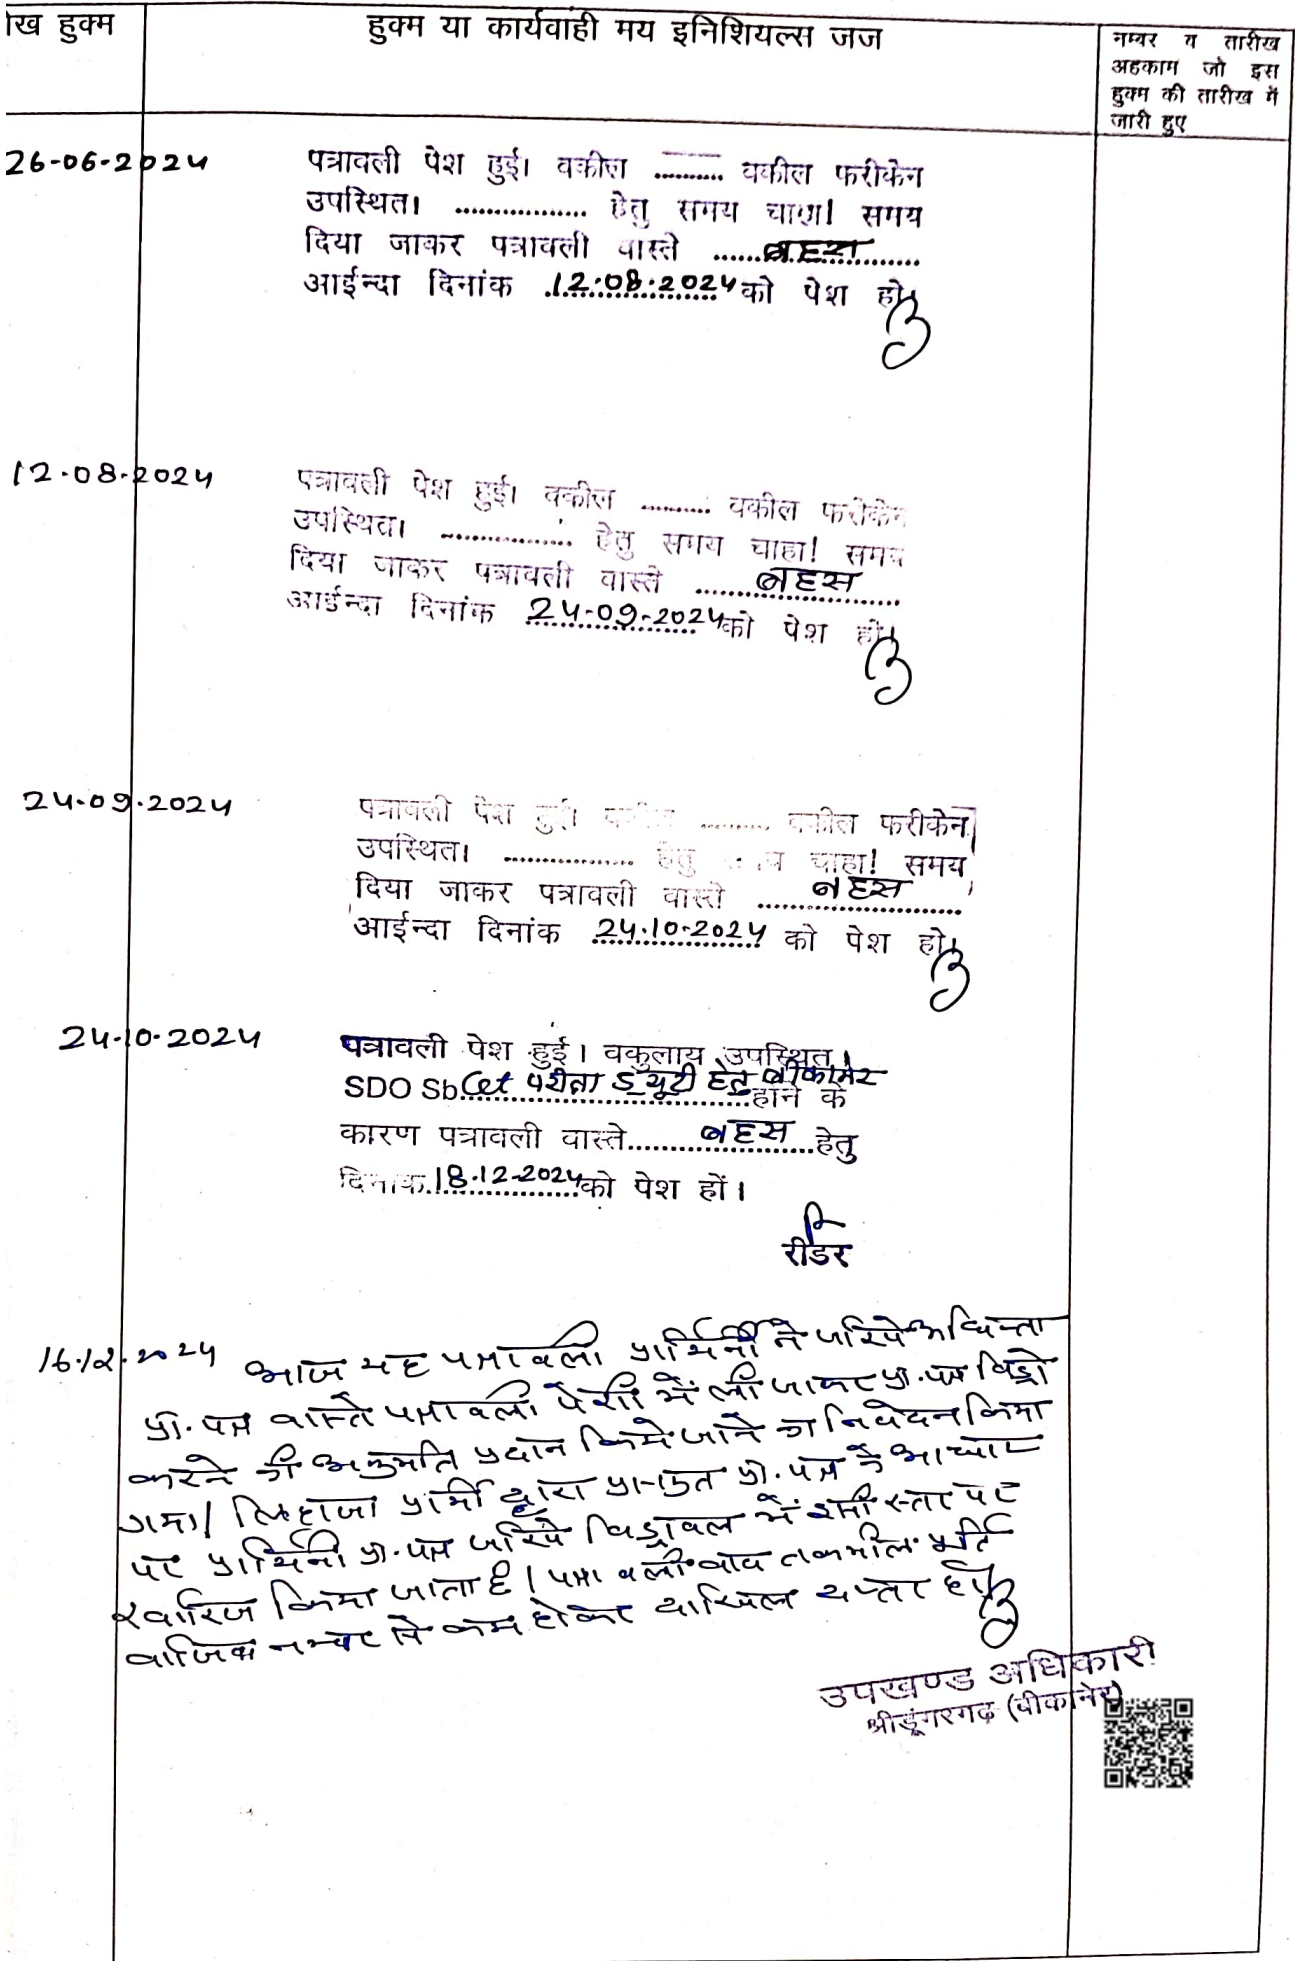 ेख हुक्म
हुक्म या कार्यवाही मय इनिशियल्स जज
नम्बर व तारीख
अहकाम जो इस
हुक्म की तारीख में
जारी हुए
26-06-2024
पत्रावली पेश हुई। वकील .......... वकील फरीकेन
उपस्थित। ................ हेतु समय चाहा! समय
दिया जाकर पत्रावली वास्ते ......बहस............
आईन्दा दिनांक .12.08.2024 को पेश हो।
12.08.2024
पत्रावली पेश हुई। वकील .......... वकील फरीकेन
उपस्थित। ................ हेतु समय चाहा! समय
दिया जाकर पत्रावली वास्ते ......बहस............
आईन्दा दिनांक 24-09-2024 को पेश हो।
24.09.2024
पत्रावली पेश हुई। वकील .......... वकील फरीकेन
उपस्थित। ................ हेतु समय चाहा! समय
दिया जाकर पत्रावली वास्ते ......बहस............
आईन्दा दिनांक 24.10.2024 को पेश हो।
24.10.2024
पत्रावली पेश हुई। वकुलाय उपस्थित।
SDO Sb Cet परीक्षा ड्यूटी हेतु बीकानेर होने के
कारण पत्रावली वास्ते.......बहस.......हेतु
दिनांक.18.12-2024 को पेश हों।
रीडर
16.12.2024 आज यह पत्रावली प्रार्थिनी ने जरिये अधिवक्ता
प्रा.पत्र वास्ते पत्रावली पेशी में ली जाकर प्रा.पत्र विड्रो
करने की अनुमति प्रदान किये जाने का निवेदन किया
गया। लिहाजा प्रार्थी द्वारा प्रस्तुत प्रा.पत्र के आधार
पर प्रार्थिनी प्रा.पत्र जरिये विड्रावल में इसी स्तर पर
खारिज किया जाता है। पत्रावली बाद तकमील पूर्ति
नम्बर से कम होकर दाखिल दफ्तर हो।
उपखण्ड अधिकारी
श्रीडूंगरगढ़ (बीकानेर)